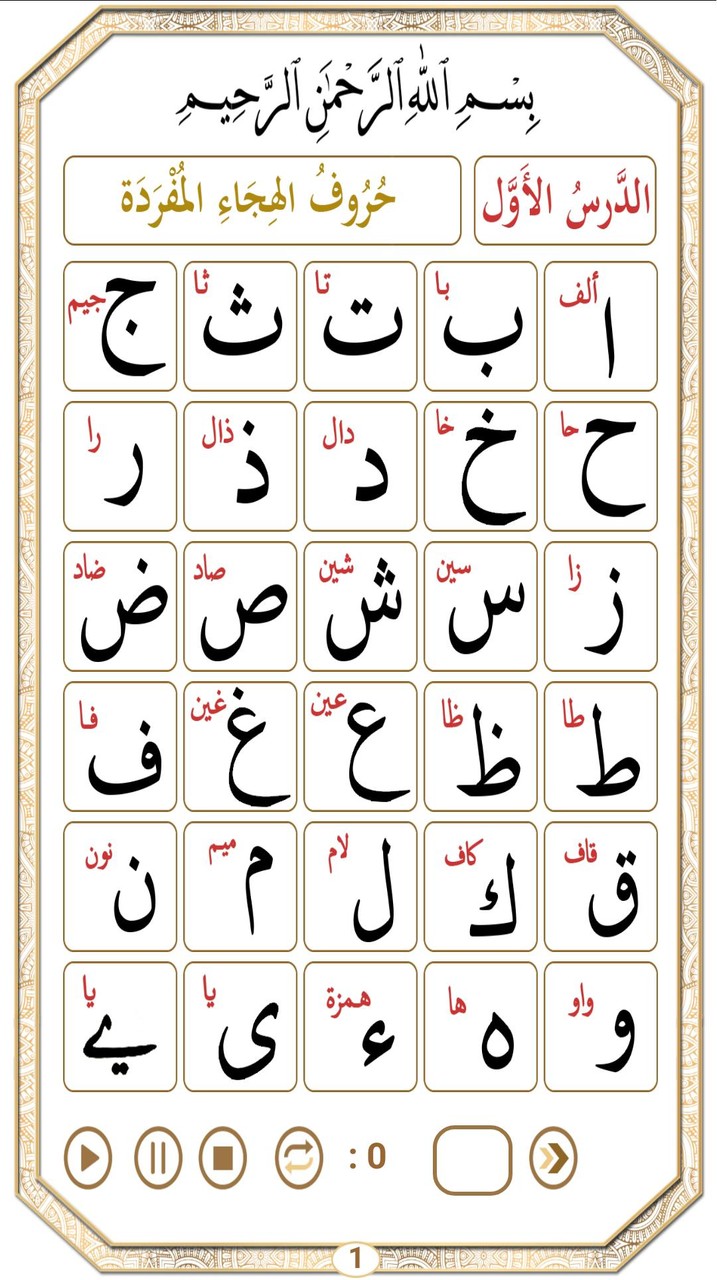 بِسْمِ ٱللَّهِ ٱلرَّحْمَٰنِ ٱلرَّحِيمِ
الدَّرسُ الأَوَّل
حُرُوفُ الهِجَاءِ المُفْرَدَة
ا ألف ب با ت تا ث ثا ج جيم
ح حا خ خا د دال ذ ذال ر را
ز زا س سين ش شين ص صاد ض ضاد
ط طا ظ ظا ع عين غ غين ف فا
ق قاف ك كاف ل لام م ميم ن نون
و واو ه ها ء همزة ى يا ے يا
: 0
1